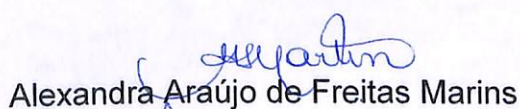 Alexandra Araújo de Freitas Marins